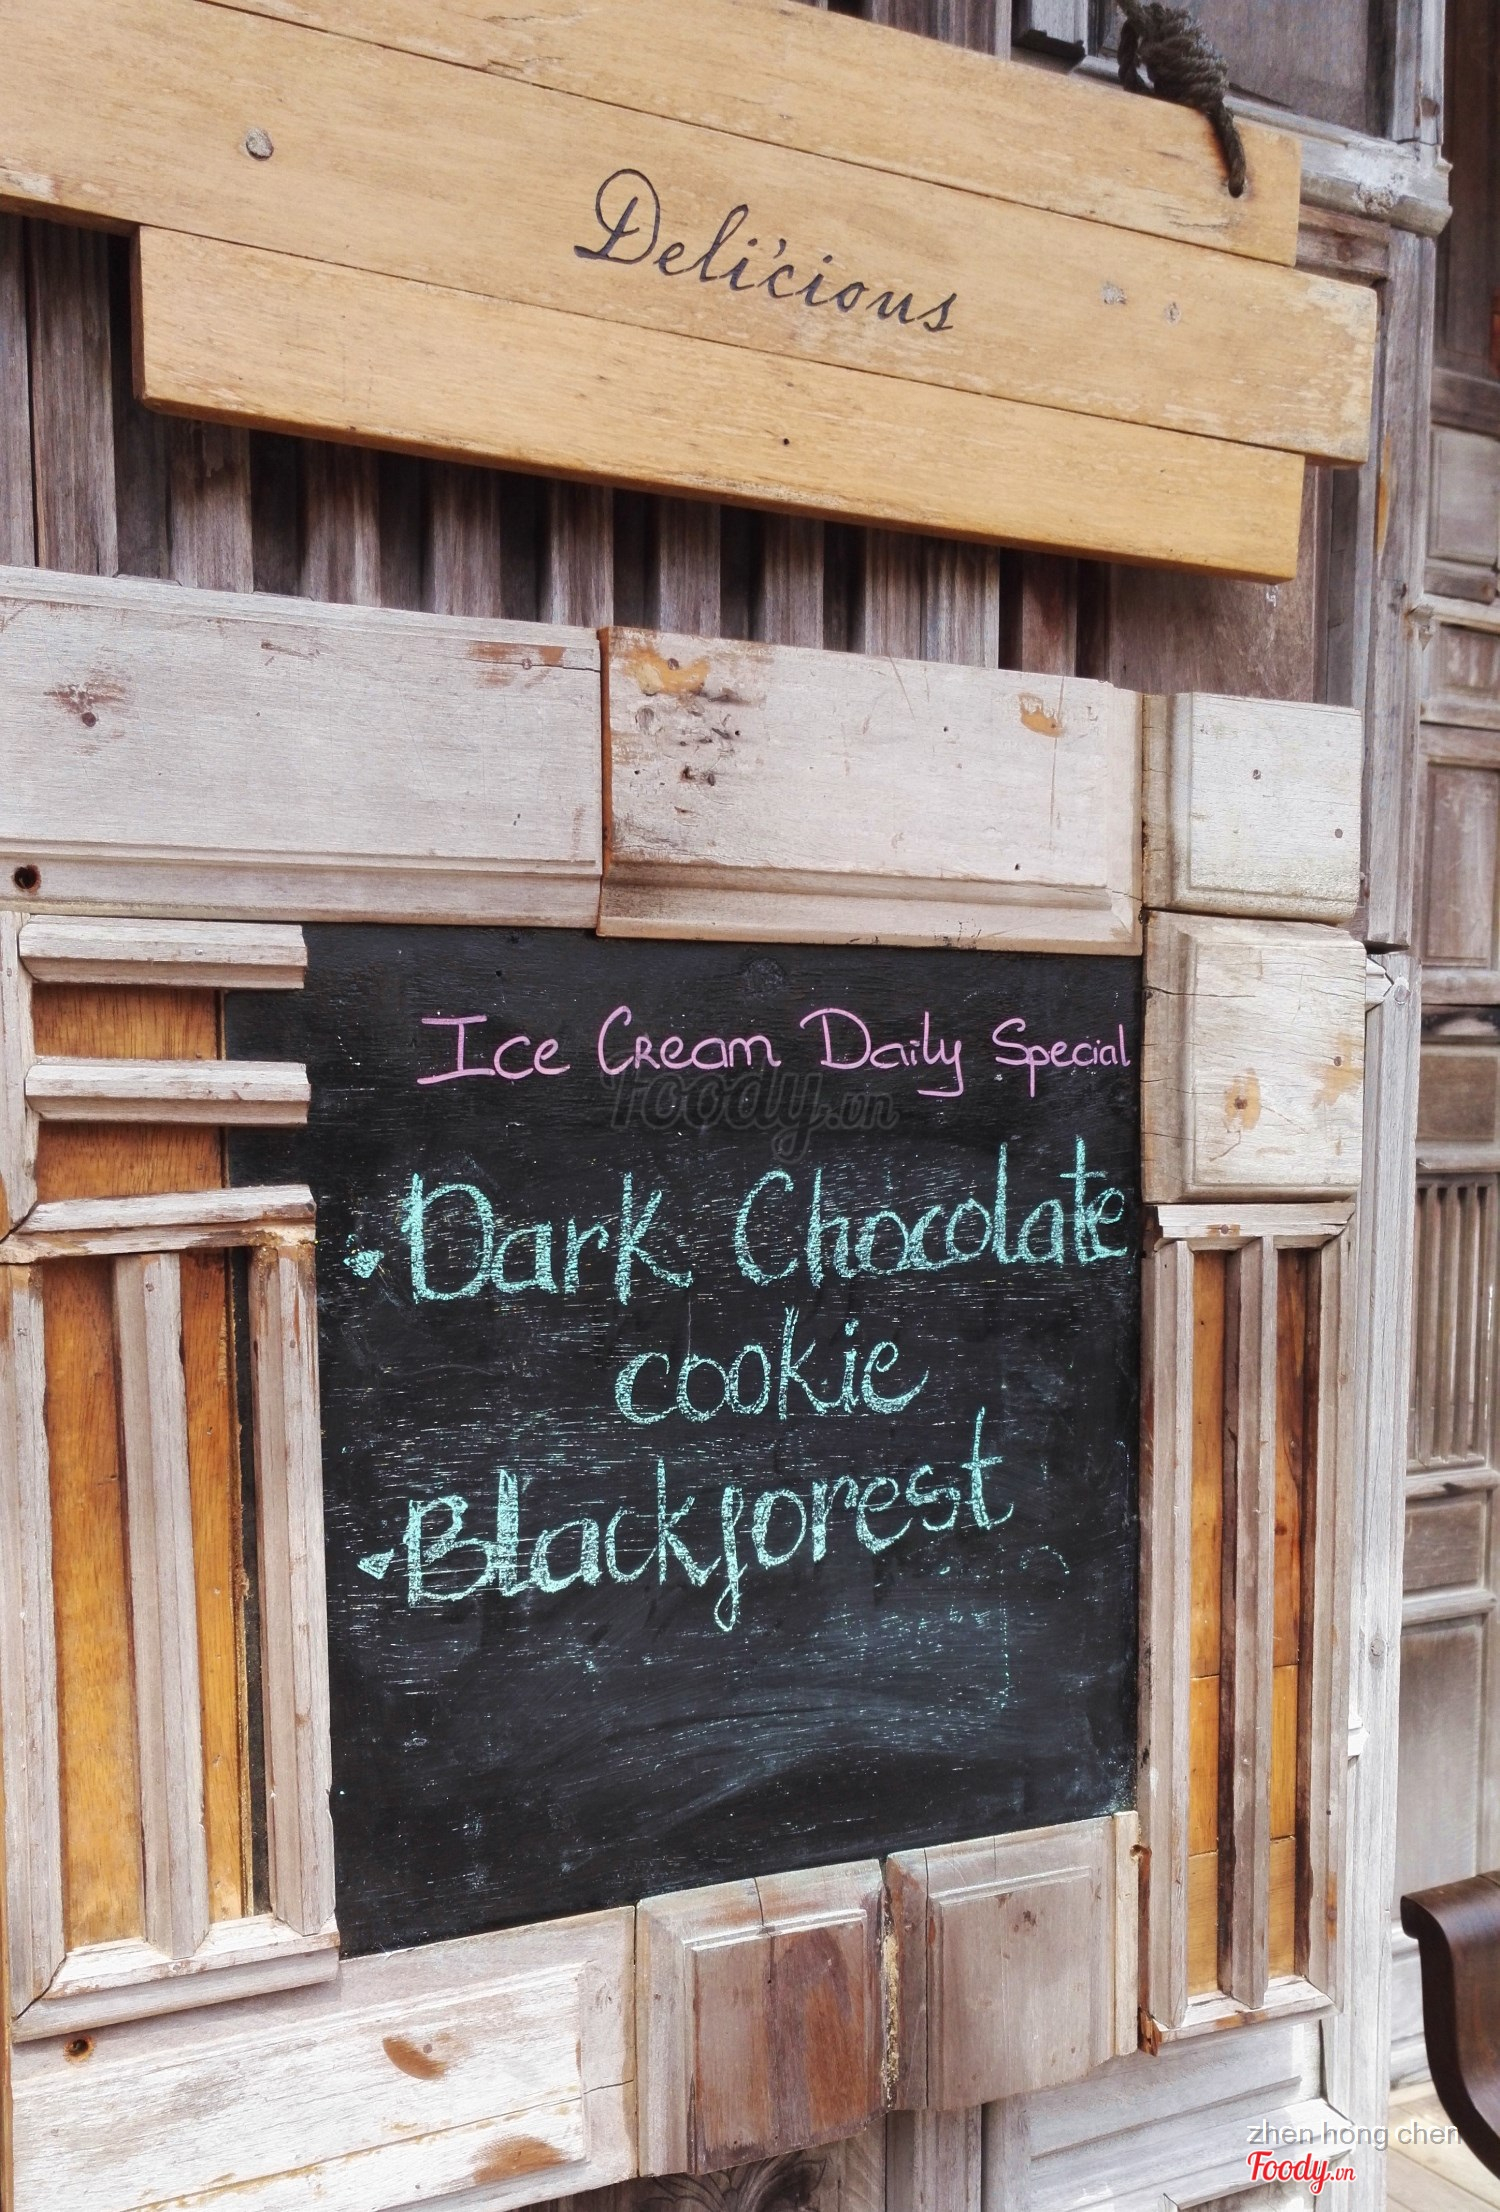 Deli'cious
Ice Cream Daily Special
Foody.vn
Dark Chocolate
cookie
Blackforest
zhen hong chen
Foody.vn